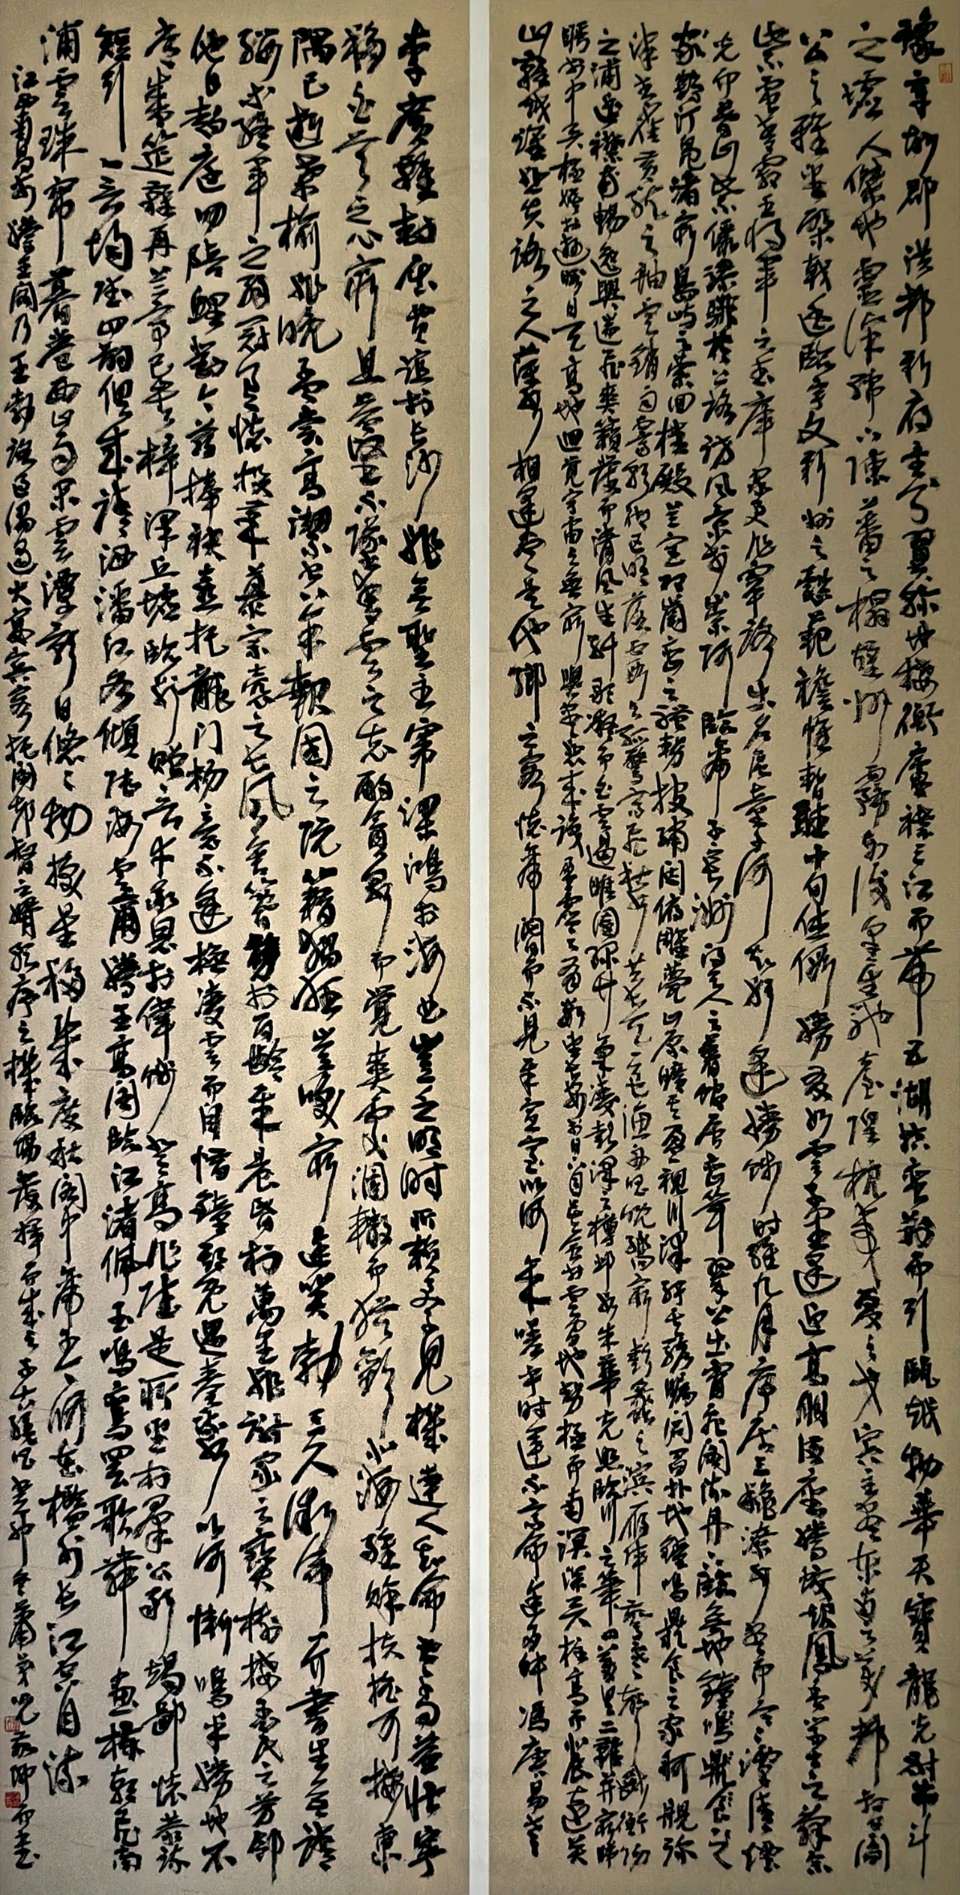 豫章故郡洪都新府星分翼軫地接衡廬襟三江而帶五湖控蠻荊而引甌越物華天寶龍光射牛斗
之墟人傑地靈徐孺下陳蕃之榻雄州霧列俊采星馳臺隍枕夷夏之交賓主盡東南之美都督閻
公之雅望棨戟遙臨宇文新州之懿範襜帷暫駐十旬休假勝友如雲千里逢迎高朋滿座騰蛟起鳳孟學士之詞宗
紫電青霜王將軍之武庫家君作宰路出名區童子何知躬逢勝餞時維九月序屬三秋潦水盡而寒潭清煙
光凝而暮山紫儼驂騑於上路訪風景於崇阿臨帝子長洲得天人之舊館層巒聳翠上出重霄飛閣流丹下臨無地鐘鳴鼎食之
家鶴汀鳧渚窮島嶼之縈回桂殿蘭宮列岡巒之體勢披繡闥俯雕甍山原曠其盈視川澤紆其駭矚閭閻撲地鐘鳴鼎食之家舸艦彌
津青雀黃龍之舳雲銷雨霽彩徹區明落霞與孤鶩齊飛秋水共長天一色漁舟唱晚響窮彭蠡之濱雁陣驚寒聲斷衡陽
之浦遙襟甫暢逸興遄飛爽籟發而清風生纖歌凝而白雲遏睢園綠竹氣凌彭澤之樽鄴水朱華光照臨川之筆四美具二難并窮睇
眄於中天極娛遊於暇日天高地迥覺宇宙之無窮興盡悲來識盈虛之有數望長安於日下目吳會於雲間地勢極而南溟深天柱高而北辰遠關
山難越誰悲失路之人萍水相逢盡是他鄉之客懷帝閽而不見奉宣室以何年嗟乎時運不齊命途多舛馮唐易老
李廣難封屈賈誼於長沙非無聖主竄梁鴻於海曲豈乏明時所賴君子見機達人知命老當益壯寧
移白首之心窮且益堅不墜青雲之志酌貪泉而覺爽處涸轍而猶歡北海雖賒扶搖可接東
隅已逝桑榆非晚孟嘗高潔空餘報國之阮籍猖狂豈效窮途哭勃三尺微命一介書生無路請
纓等終軍之弱冠有懷投筆慕宗愨之長風舍簪笏於百齡奉晨昏於萬里非謝家之寶樹接孟氏之芳鄰
他日趨庭叨陪鯉對今茲捧袂喜托龍门楊意不逢撫凌雲而自惜鍾期既遇奏流水以何慚嗚乎勝地不
常盛筵難再蘭亭已矣梓澤丘墟臨別贈言幸承恩於偉餞登高作賦是所望於群公敢竭鄙懷恭疏
短引一言均賦四韻俱成請灑潘江各傾陸海云爾滕王高閣臨江渚佩玉鳴鸞罷歌舞畫棟朝飛南
浦雲珠簾暮卷西山雨閑雲潭影日悠悠物換星移幾度秋閣中帝子今何在檻外長江空自流
江西南昌滕王閣乃王勃